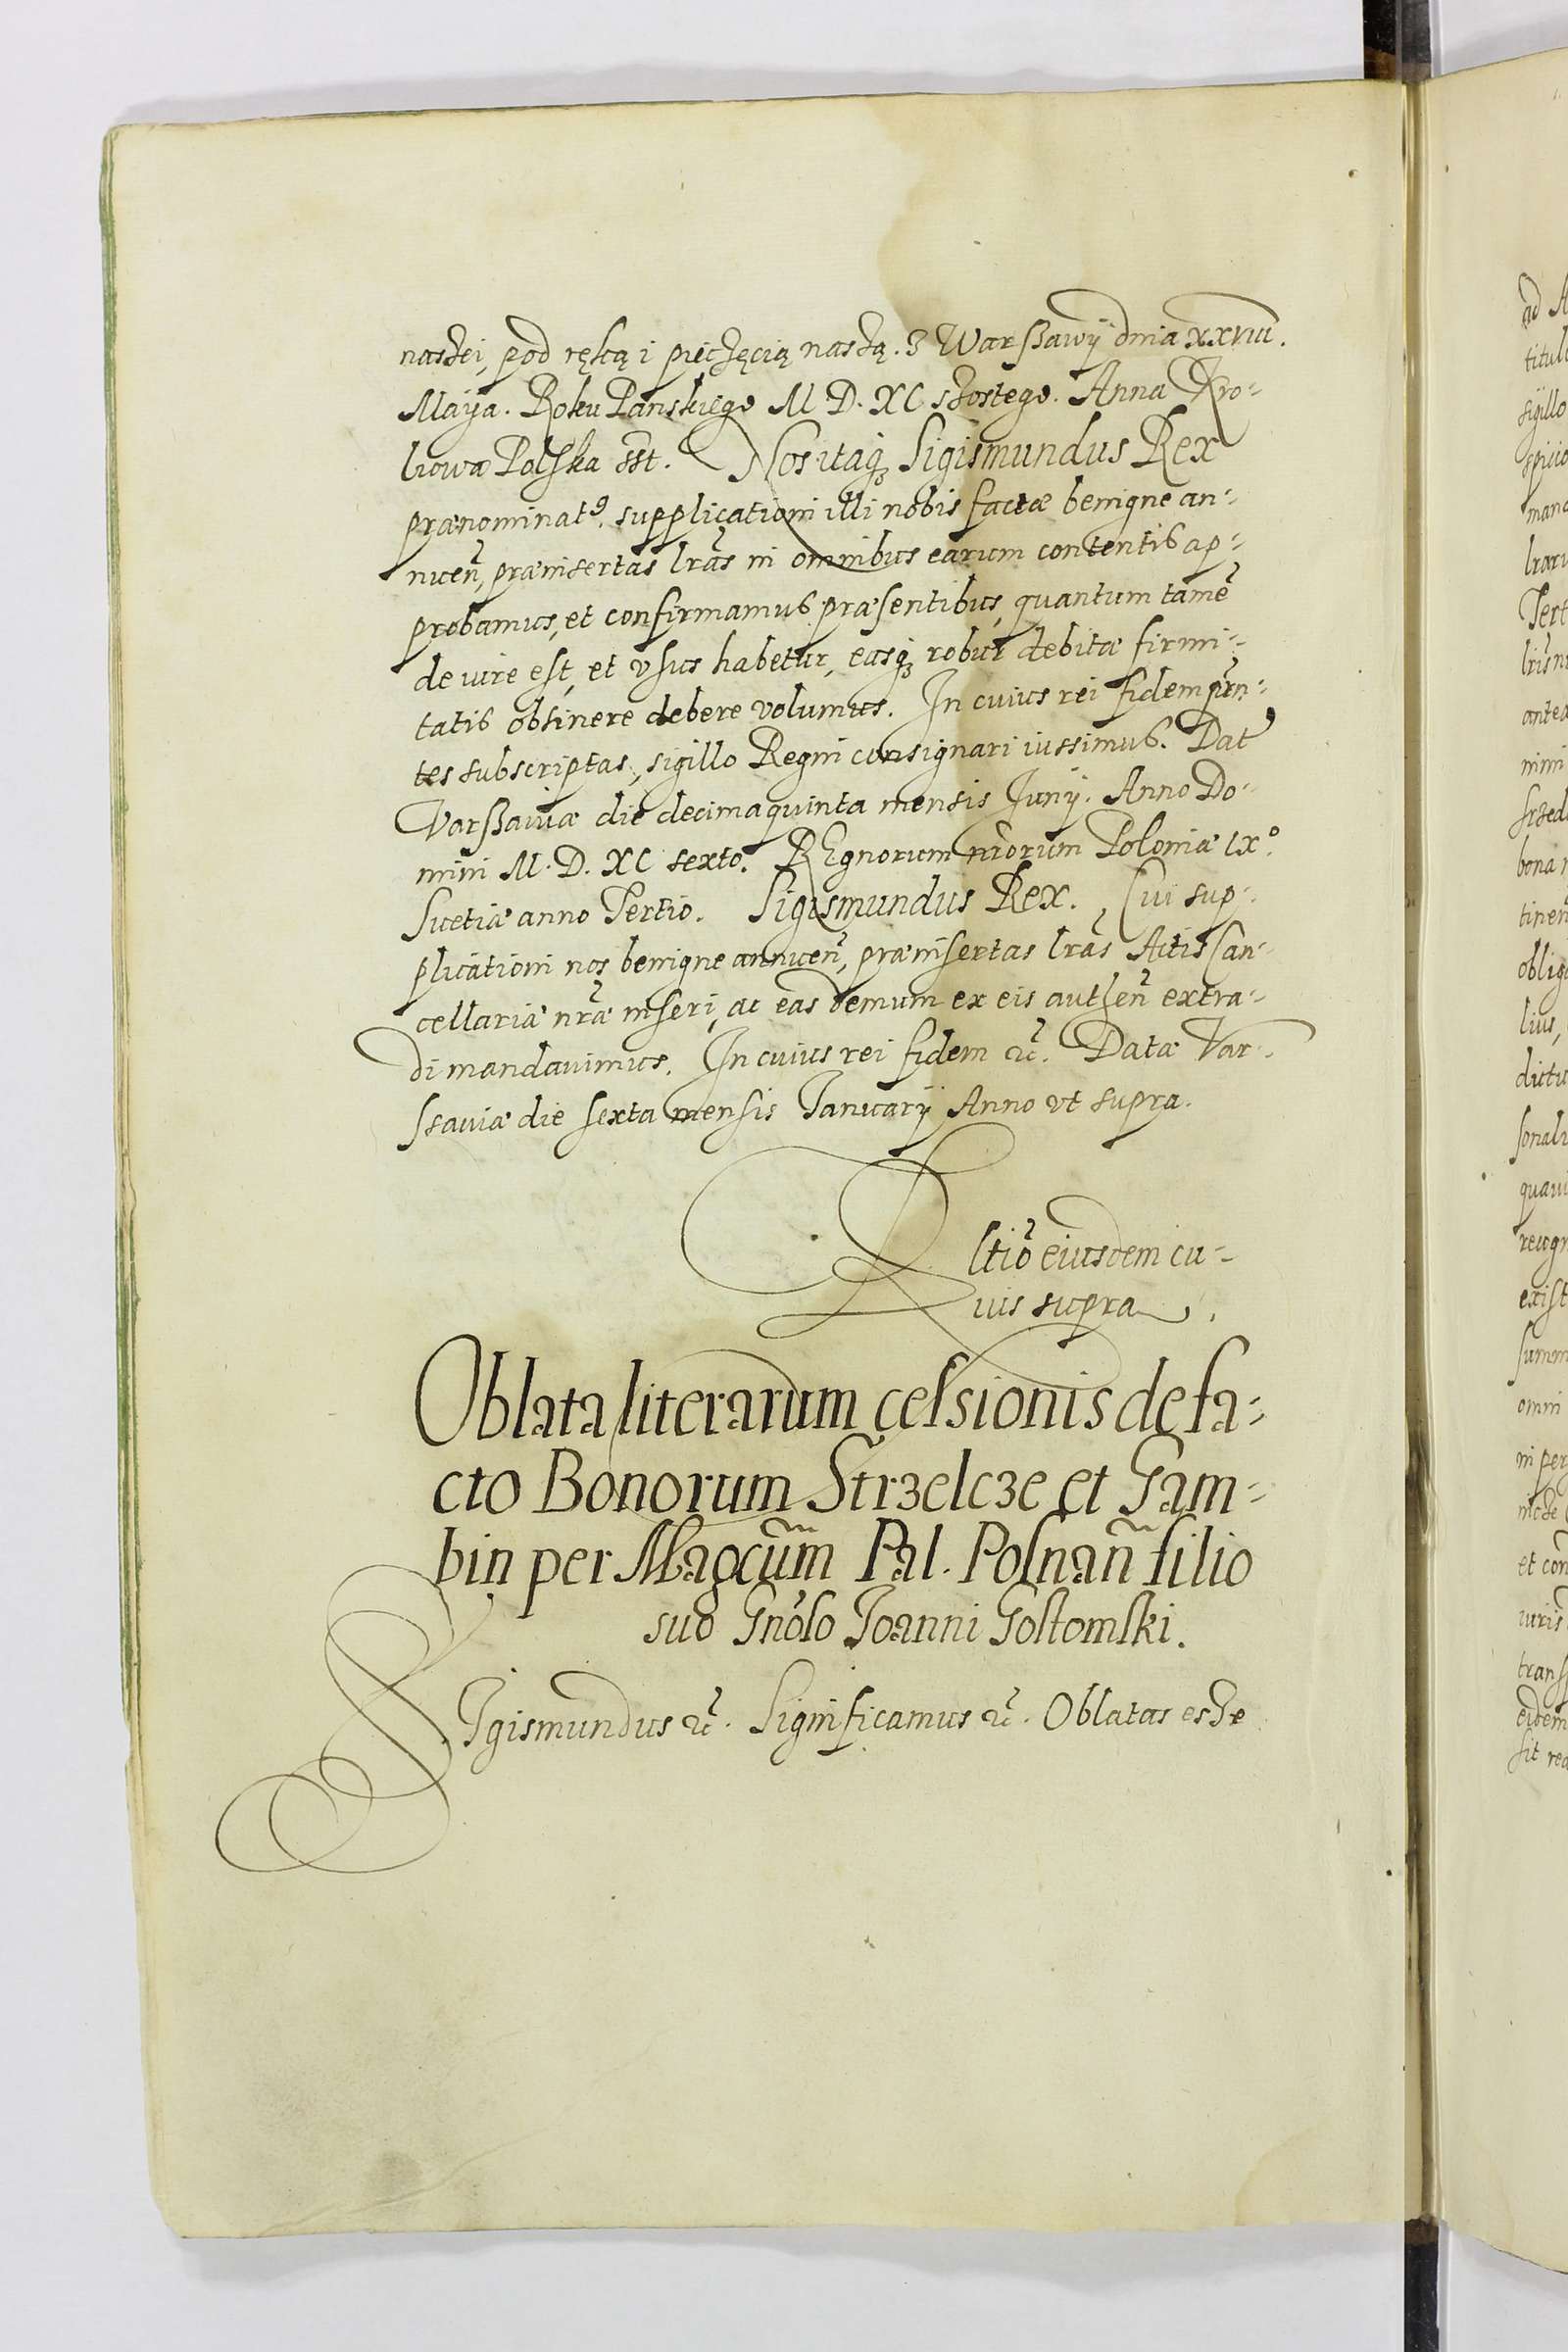 naszei, pod ręką i pieczęcią naszą. Z Warßawÿ dnia XXVIII.
Maÿa. Roku Pańskiego M D. XC szostego. Anna Kro-
liowa Polska sst. Nos itaq₃ Sigismundus Rex
prænominatꝰ. supplicationi illi nobis factæ benigne an-
nueñ, præinsertas lr̃as in omnibus earum contentis ap-
probamus, et confirmamus præsentibus, quantum tamẽ
de iure est, et vsus habetur, easq₃ robur debitæ firmi-
tatis obtinere debere volumus. In cuius rei fidem pr̃n-
tes subscriptas, sigillo Regni consignari iussimus. Dat
Varßauiæ die decimaquinta mensis Junÿ. Anno Do-
mini M. D. XC sexto. REgnorum nr̃orum Poloniæ IX°.
Suetiæ anno Tertio. Sigismundus Rex. Cui sup-
plicationi nos benigne annueñ, præinsertas lr̃as Actis Can-
cellariæ nr̃æ inseri, ac eas demum ex eis autheñ extra-
di mandauimus. In cuius rei fidem &c̃. Datæ Var-
ssauiæ die sexta mensis Januarÿ Anno vt supra.
Rltiõ eiusdem cu-
ius supra.
Oblata literarum cessionis de fa-
cto Bonorum Strzelcze et Gam-
bin per Magcũm Pal. Posnañ filio
suo Gnõso Joanni Gostomski.
SIgismundus &c̃. Significamus &c̃. Oblatas esse